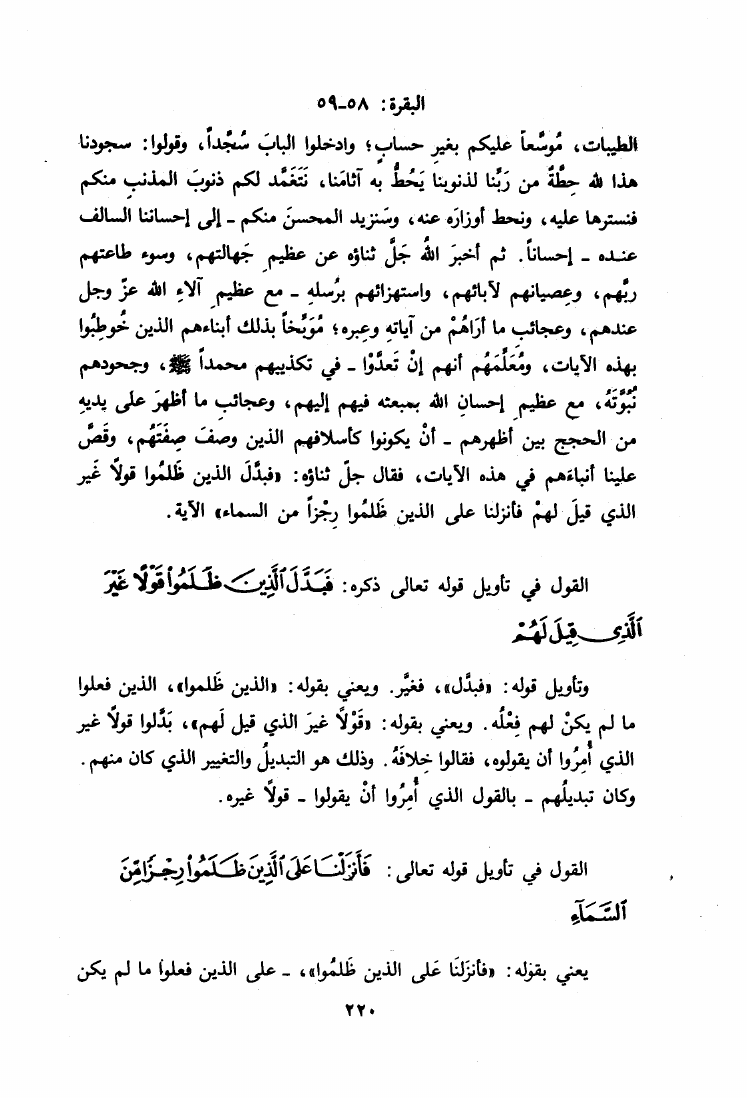 البقرة: ٥٨-٥٩
الطيبات، مُوَسَّعاً عليكم بغيرِ حسابٍ؛ وادخلوا البابَ سُجَّداً، وقولوا: سجودنا
هذا لله حِطَّةٌ من رَبِّنا لذنوبنا يَحُطُّ به آثامَنا، نَتَغَمَّد لكم ذنوبَ المذنبِ منكم
فنسترها عليه، ونحط أوزارَه عنه، وسَنزيد المحسنَ منكم - إلى إحساننا السالف
عنده - إحساناً. ثم أخبرَ اللهُ جَلَّ ثناؤه عن عظيمِ جَهالتهم، وسوء طاعتهم
ربَّهم، وعِصيانهم لآبائهم، واستهزائهم برُسلهِ - مع عظيمِ آلاءِ الله عزّ وجل
عندهم، وعجائبِ ما أرَاهُمْ من آياتهِ وعِبره؛ مُوَبِّخاً بذلك أبناءهم الذين خُوطِبُوا
بهذه الآيات، ومُعَلِّمَهُم أنهم إنْ تَعدَّوْا - في تكذيبهم محمداً ﷺ، وجحودهم
نُبُوَّتَهُ، مع عظيمِ إحسانِ الله بمبعثه فيهم إليهم، وعجائبِ ما أظهرَ على يديهِ
من الحججِ بين أظهرهم - أنْ يكونوا كأسلافهم الذين وصفَ صِفَتَهُم، وقَصَّ
علينا أنباءَهم في هذه الآيات، فقال جلّ ثناؤه: «فبدَّلَ الذين ظَلمُوا قولاً غَير
الذي قيلَ لهمْ فأنزلنا على الذين ظَلمُوا رِجْزاً من السماء» الآية.
القول في تأويل قوله تعالى ذكره: فَبَدَّلَ ٱلَّذِينَ ظَلَمُواْ قَوْلًا غَيْرَ
ٱلَّذِى قِيلَ لَهُمْ
وتأويل قوله: «فبدَّل»، فغيَّر. ويعني بقوله: «الذين ظَلموا»، الذين فعلوا
ما لم يكنْ لهم فِعْلُه. ويعني بقوله: «قَوْلاً غيرَ الذي قيل لَهم»، بَدَّلوا قولاً غير
الذي أُمِرُوا أن يقولوه، فقالوا خِلافَهُ. وذلك هو التبديلُ والتغيير الذي كان منهم.
وكان تبديلُهم - بالقول الذي أُمِرُوا أنْ يقولوا - قولاً غيره.
القول في تأويل قوله تعالى: فَأَنزَلْنَا عَلَى ٱلَّذِينَ ظَلَمُواْ رِجْزًا مِّنَ
ٱلسَّمَآءِ
يعني بقوله: «فأنزَلنَا عَلى الذين ظَلمُوا»، - على الذين فعلوا ما لم يكن
٢٢٠